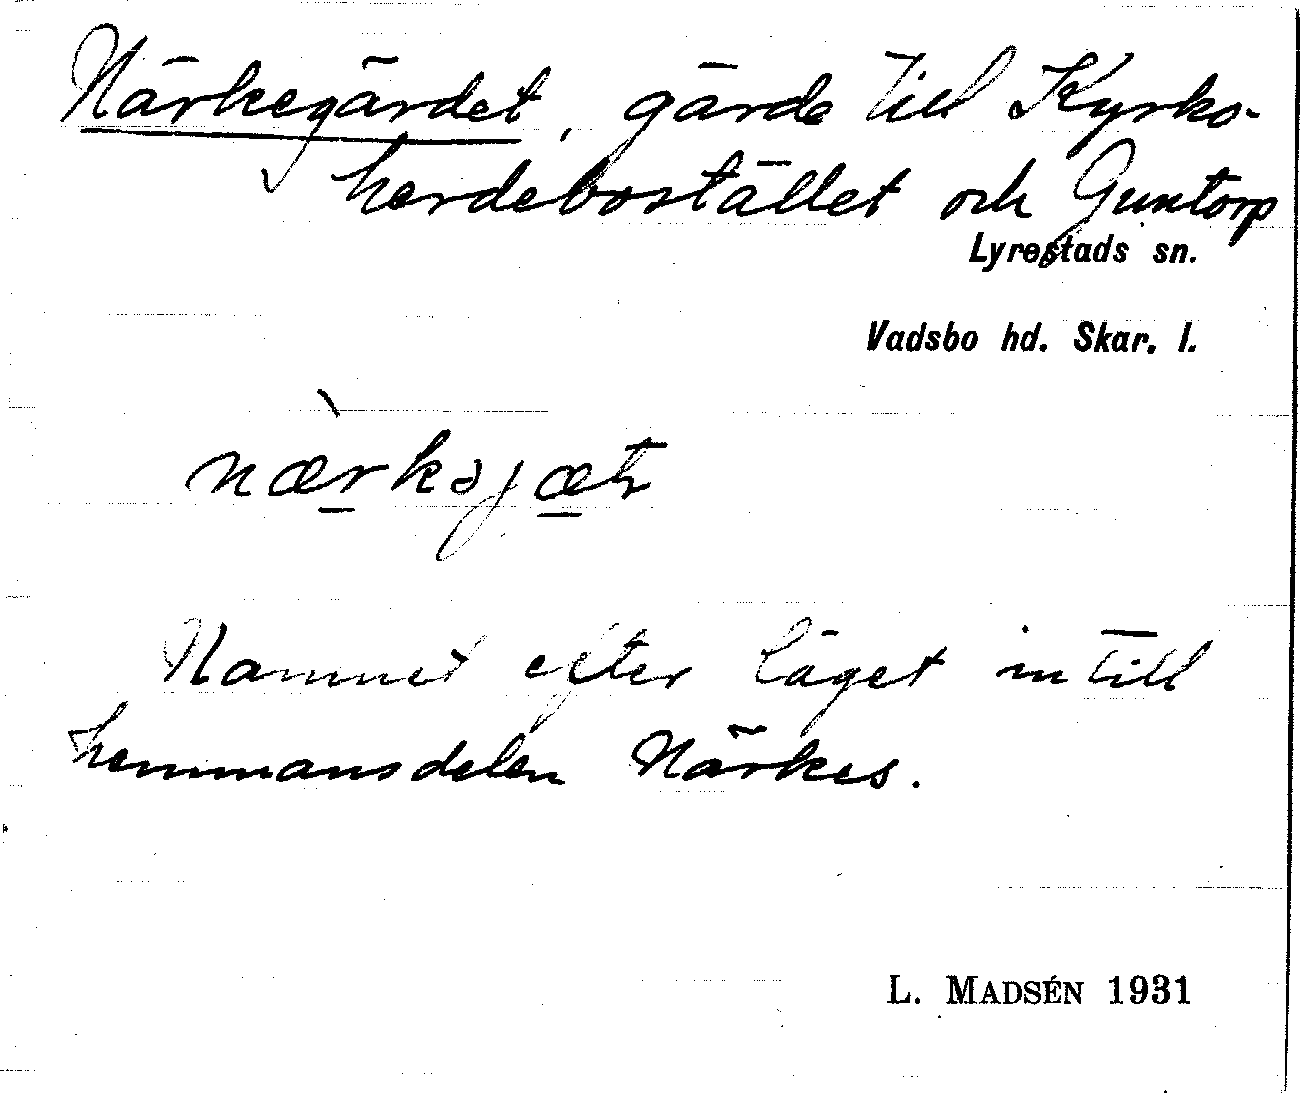 Närkegärdet, gärde till Kyrko-
herdebostället och Guntorp
Lyrestads sn.
Vadsbo hd. Skar. l.
nær̲kəjæ̲t
Namnet efter läget intill
hemmansdelen Närkes.
L. MADSÉN 1931